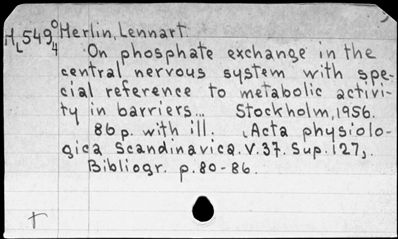 HL549 04 Herlin, Lennart
On phosphate exchange in the
central nervous system with spe-
cial reference to metabolic activi-
ty in barriers... Stockholm, 1956.
86 p. with ill. (Acta physiolo-
gica Scandinavica. V. 37. Sup. 127).
Bibliogr. p. 80-86.